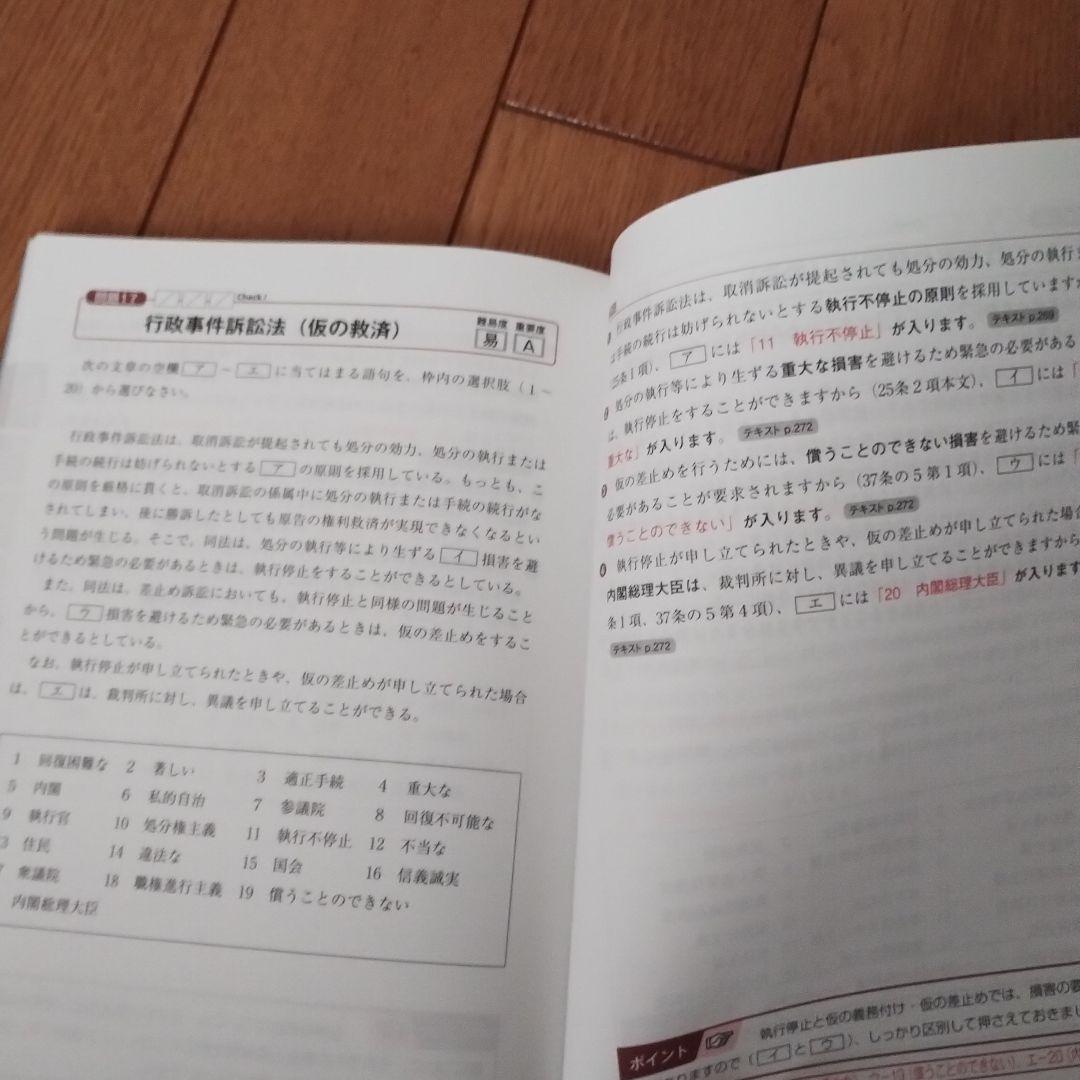 問題17
Check!
行政事件訴訟法（仮の救済）
難易度 重要度
易 A
次の文章の空欄 ア ～ エ に当てはまる語句を、枠内の選択肢（1～
20）から選びなさい。
行政事件訴訟法は、取消訴訟が提起されても処分の効力、処分の執行または
手続の続行は妨げられないとする ア の原則を採用している。もっとも、こ
の原則を厳格に貫くと、取消訴訟の係属中に処分の執行または手続の続行がな
されてしまい、後に勝訴したとしても原告の権利救済が実現できなくなるとい
う問題が生じる。そこで、同法は、処分の執行等により生ずる イ 損害を避
けるため緊急の必要があるときは、執行停止をすることができるとしている。
また、同法は、差止め訴訟においても、執行停止と同様の問題が生じること
から、 ウ 損害を避けるため緊急の必要があるときは、仮の差止めをするこ
とができるとしている。
なお、執行停止が申し立てられたときや、仮の差止めが申し立てられた場合
は、 エ は、裁判所に対し、異議を申し立てることができる。
1 回復困難な 2 著しい 3 適正手続 4 重大な
5 内閣 6 私的自治 7 参議院 8 回復不可能な
9 執行官 10 処分権主義 11 執行不停止 12 不当な
3 住民 14 違法な 15 国会 16 信義誠実
7 衆議院 18 職権進行主義 19 償うことのできない
内閣総理大臣
行政事件訴訟法は、取消訴訟が提起されても処分の効力、処分の執行ま
は手続の続行は妨げられないとする執行不停止の原則を採用していますが
25条1項）、 ア には「11 執行不停止」が入ります。 テキスト p.269
処分の執行等により生ずる重大な損害を避けるため緊急の必要がある
は、執行停止をすることができますから（25条2項本文）、 イ には「
重大な」が入ります。 テキスト p.272
仮の差止めを行うためには、償うことのできない損害を避けるため緊
必要があることが要求されますから（37条の5第1項）、 ウ には「
償うことのできない」が入ります。 テキスト p.272
執行停止が申し立てられたときや、仮の差止めが申し立てられた場合
内閣総理大臣は、裁判所に対し、異議を申し立てることができますから
条1項、37条の5第4項）、 エ には「20 内閣総理大臣」が入ります
テキスト p.272
ポイント 執行停止と仮の義務付け・仮の差止めでは、損害の要
りますので（ イ と ウ ）、しっかり区別して押さえておきまし
（償うことのできない）、エ－20